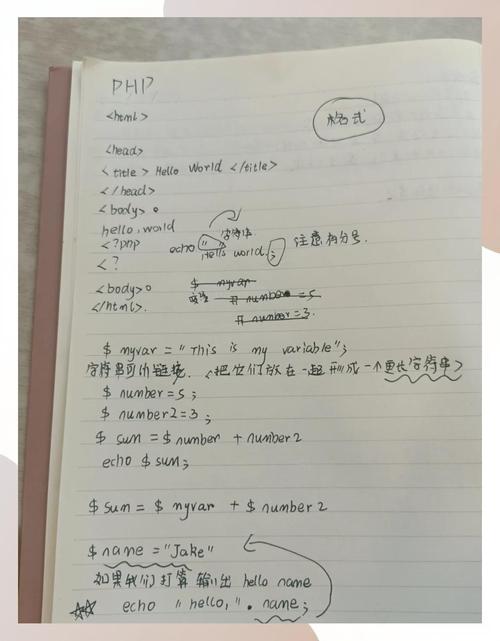 PHP
<html>
格式
<head>
<title> Hello World </title>
</head>
<body>
hello, world
字符串
<?php echo " Hello world. ; 注意有分号.
<?
$ myvar
<body>
number = 5
</html>.
number = 3.
$ myvar = "This is my variable";
字符串可以链接. <把它们放在一起形成一个更长字符串>
$ number=5;
$ number2=3;
$ sum = $ number + number2
echo $ sum;
$ sum = $ myvar + $ number2
$ name = "Jake"
如果我们打算输出 hello name
echo "hello,". name;